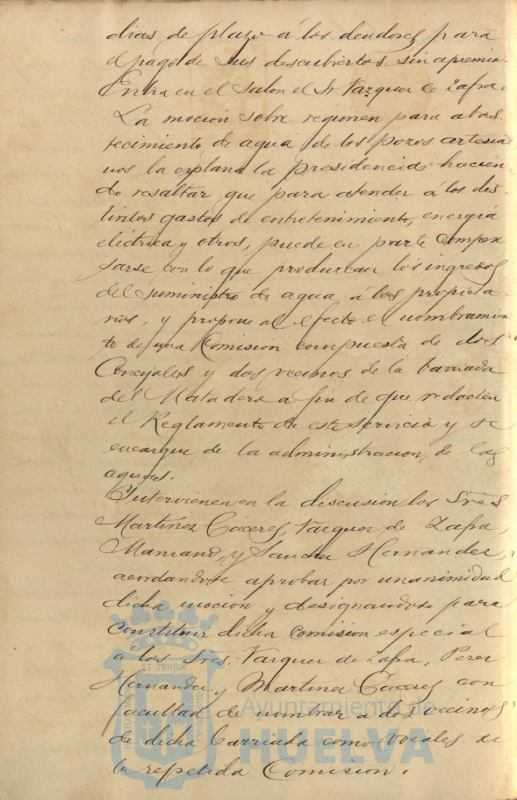 dias de plazo á los deudores para
el pago de sus descubiertos sin apremio.
Entra en el salon el Sr Vazquez de Zafra.
La mocion sobre regimen para abas
tecimiento de agua de los pozos artesia
nos la explana la presidencia hacien
do resaltar que para atender á los dis
tintos gastos de entretenimiento, energia
eléctrica y otros, puede en parte compen
sarse con lo que produzcan los ingresos
del suministro de agua á los propieta
rios, y propone al efecto el nombramien
to de una Comision compuesta de dos
Concejales y dos vecinos de la barriada
del Matadero a fin de que redacten
el Reglamento de este servicio y se
encargue de la administracion de las
aguas.
Intervienen en la discusion los Sres
Martinez Cáceres, Vazquez de Zafra,
Manzano, y Sanchez Hernandez,
acordandose aprobar por unanimidad
dicha mocion y designandose para
constituir dicha comision especial
á los Sres. Vazquez de Zafra, Perez
Hernandez y Martinez Cáceres con
facultad de nombrar a dos vecinos
de dicha barriada como vocales de
la repetida Comision.
Ayuntamiento de
HUELVA